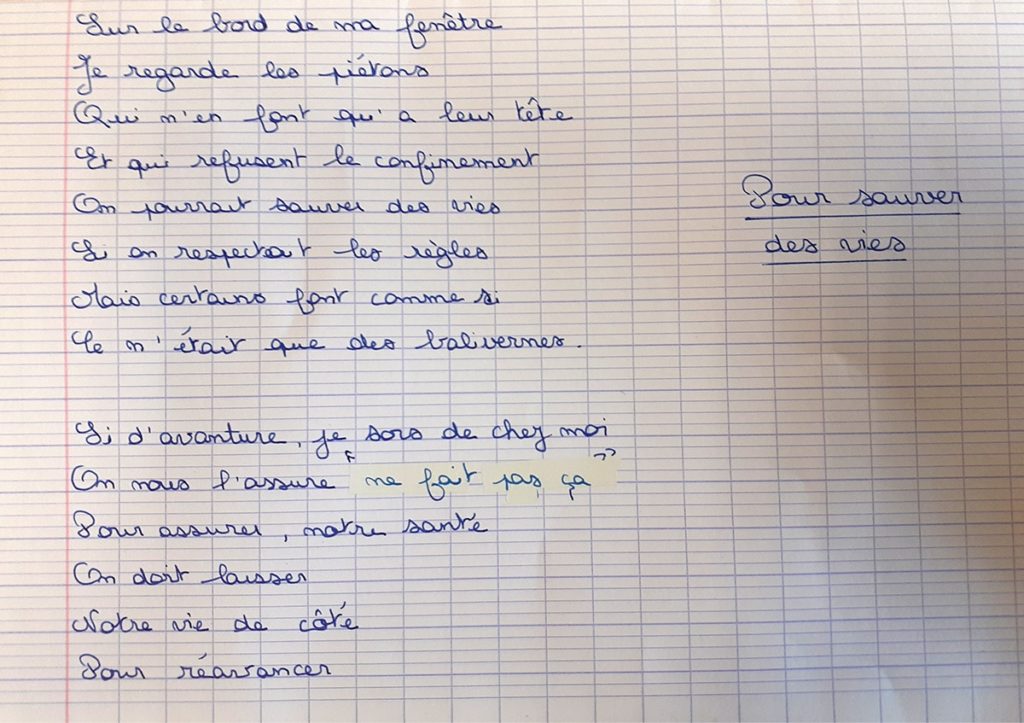 Sur le bord de ma fenêtre
Je regarde les piétons
Qui n'en font qu'a leur tête
Et qui refusent le confinement
On pourrait sauver des vies
Si on respectait les règles
Mais certains font comme si
Ce n'était que des balivernes.
Pour sauver
des vies
Si d'avanture, je sors de chez moi
On nous l'assure " ne fait pas ça "
Pour assurer, notre santé
On doit laisser
Notre vie de côté
Pour réavancer